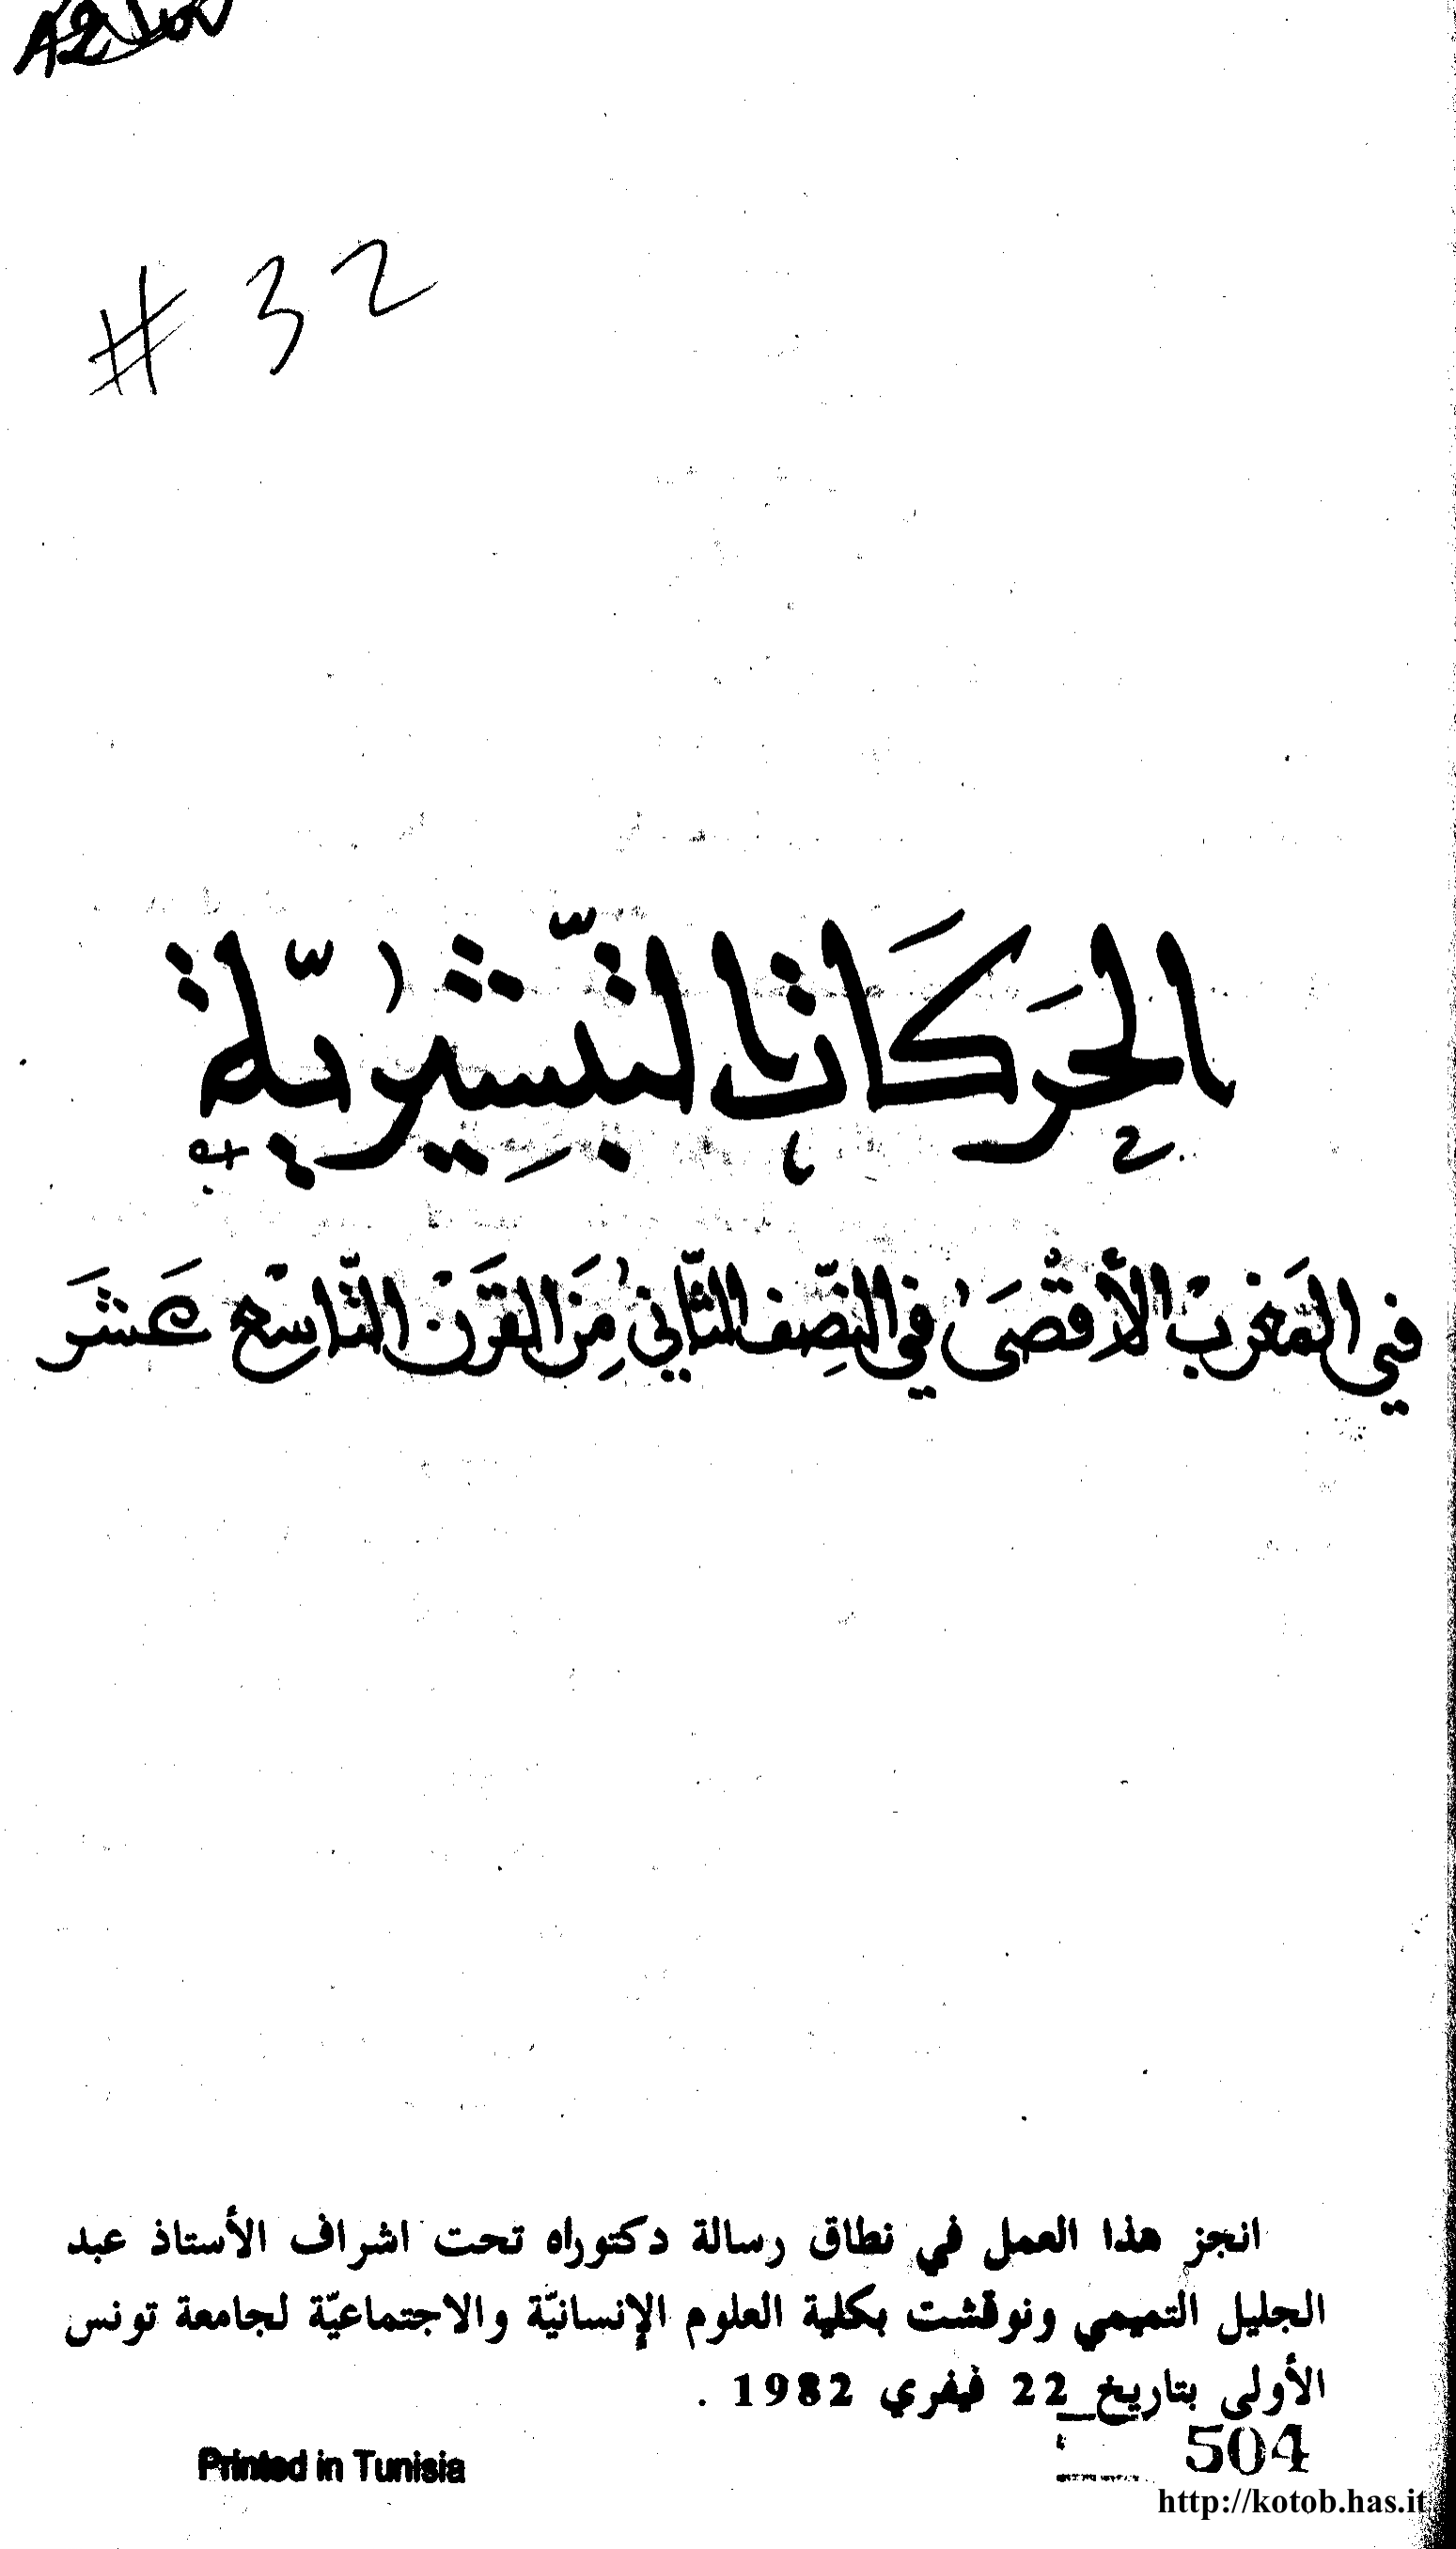 # 32
الحَركَات التّبشِيريّة
في المَغرب الأقصَى في النّصِف الثّاني مِنَ القَرن التّاسع عَشَر
انجز هذا العمل في نطاق رسالة دكتوراه تحت اشراف الأستاذ عبد
الجليل التميمي ونوقشت بكلية العلوم الإنسانيّة والاجتماعيّة لجامعة تونس
الأولى بتاريخ 22 فيفري 1982 .
504
Printed in Tunisia
http://kotob.has.it